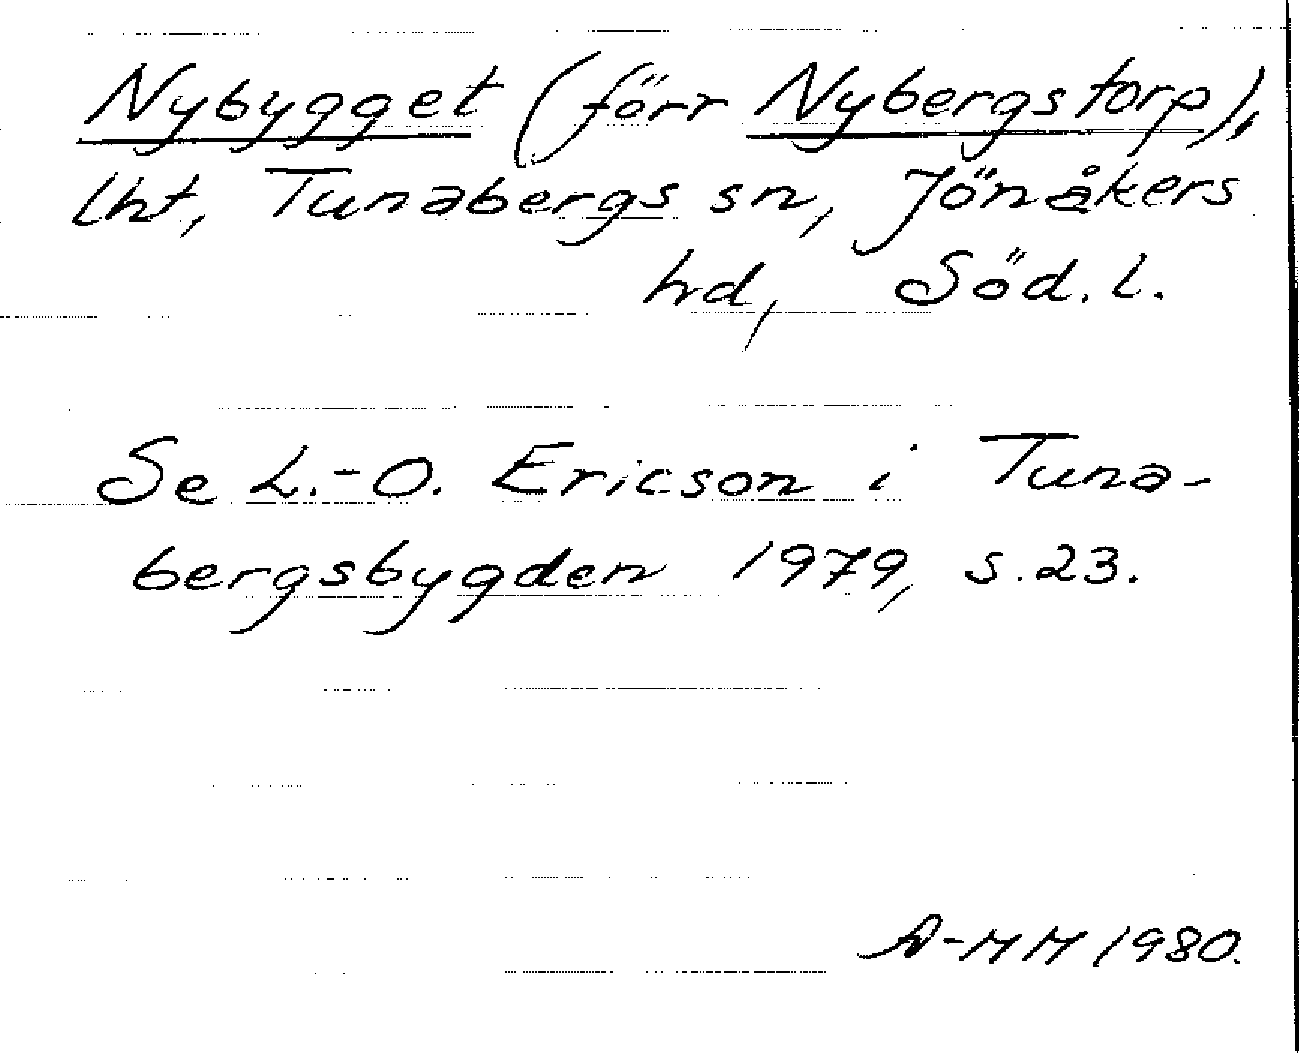 Nybygget (förr Nybergstorp),
lht, Tunabergs sn, Jönåkers
hd, Söd. l.
Se L.-O. Ericson i Tuna-
bergsbygden 1979, s. 23.
A-MM 1980.